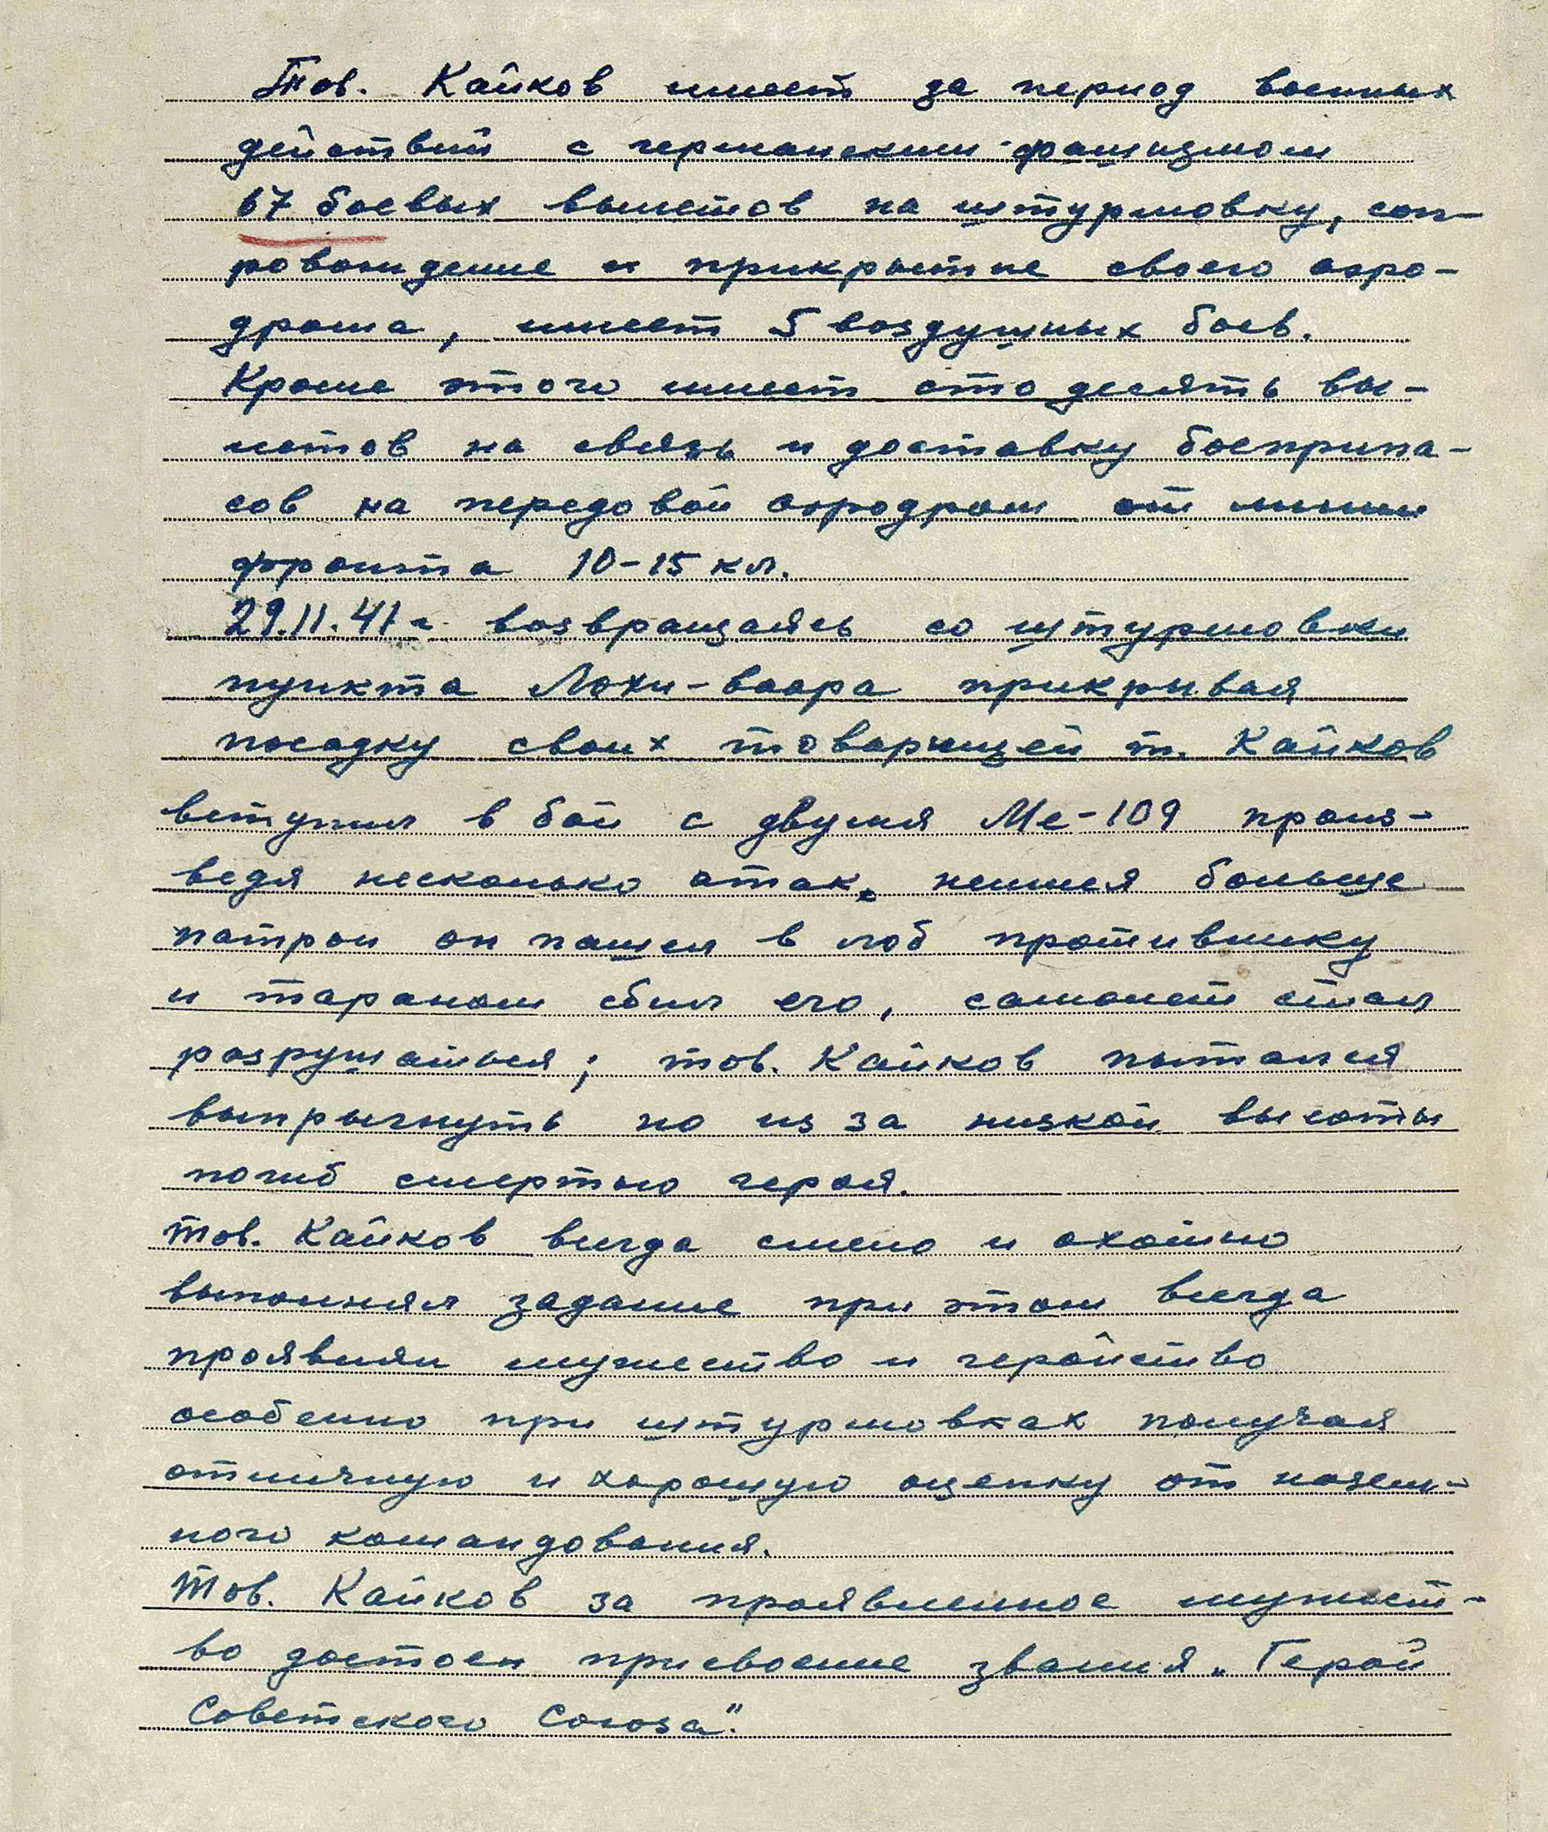 Тов. Кайков имеет за период военных
действий с германским фашизмом
67 боевых вылетов на штурмовку, соп-
ровождение и прикрытие своего аэро-
дрома, имеет 5 воздушных боев.
Кроме этого имеет сто десять вы-
летов на связь и доставку боеприпа-
сов на передовой аэродром от линии
фронта 10-15 кл.
29.11.41 г. возвращаясь со штурмовки
пункта Лохи-ваара прикрывая
посадку своих товарищей т. Кайков
вступил в бой с двумя Ме-109 произ-
ведя несколько атак, неимея больше
патрон он пошел в лоб противнику
и тараном сбил его, самолет стал
разрушаться; тов. Кайков пытался
выпрыгнуть но из за низкой высоты
погиб смертью героя.
Тов. Кайков всегда смело и охотно
выполнял задание при этом всегда
проявлял мужество и геройство
особенно при штурмовках получая
отличную и хорошую оценку от назем-
ного командования.
Тов. Кайков за проявленное мужест-
во достоен присвоение звания „Герой
Советского Союза".